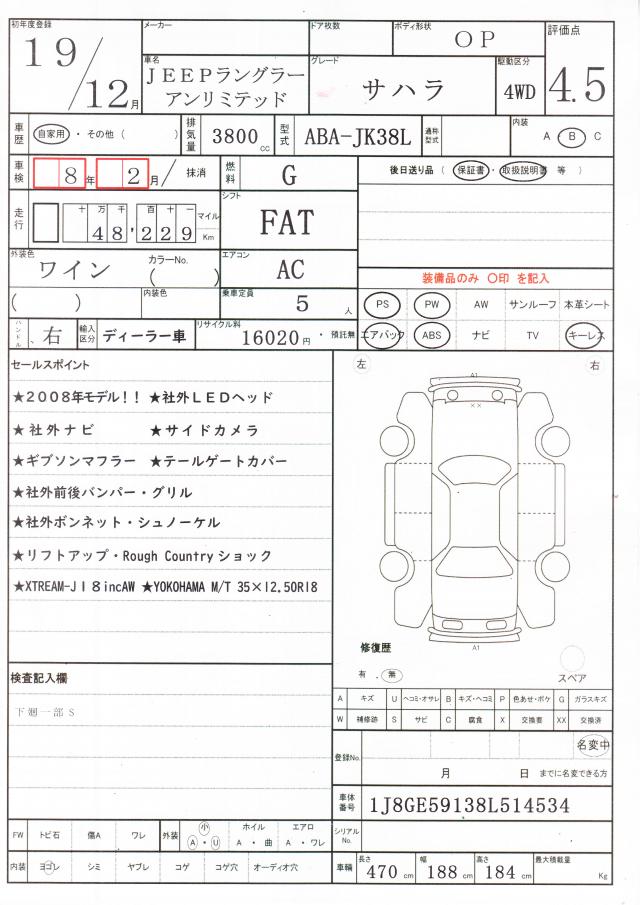 初年度登録
19/12月
メーカー
ドア枚数
ボディ形状
OP
評価点
4.5
車名
JEEPラングラー
アンリミテッド
グレード
サハラ
駆動区分
4WD
車歴
自家用・その他 ( )
排気量
3800cc
型式
ABA-JK38L
通称型式
内装
A B C
車検
8年 2月/ 抹消
燃料
G
後日送り品 ( 保証書・取扱説明書 等 )
走行
十 万 千 百 十 一
48,229
マイル
Km
シフト
FAT
外装色
ワイン
カラーNo.
( )
エアコン
AC
装備品のみ 〇印 を記入
( )
内装色
乗車定員
5人
PS PW AW サンルーフ 本革シート
エアバック ABS ナビ TV キーレス
ハンドル
右
輸入区分
ディーラー車
リサイクル料
16020円 ・ 預託無
セールスポイント
★2008年モデル!! ★社外LEDヘッド
★社外ナビ ★サイドカメラ
★ギブソンマフラー ★テールゲートカバー
★社外前後バンパー・グリル
★社外ボンネット・シュノーケル
★リフトアップ・Rough Countryショック
★XTREAM-J18incAW ★YOKOHAMA M/T 35×12.50R18
左
右
A1
××
A1
修復歴
有 . 無
スペア
検査記入欄
下廻一部S
A キズ U ヘコミ・オサレ B キズ・ヘコミ P 色あせ・ボケ G ガラスキズ
W 補修跡 S サビ C 腐食 X 交換要 XX 交換済
登録No.
名変中
月 日 までに名変できる方
車体番号
1J8GE59138L514534
シリアルNo.
FW トビ石 傷A ワレ
外装 小 A・U ホイル A ・ 曲 エアロ A ・ ワレ
内装 ヨゴレ シミ ヤブレ コゲ コゲ穴 オーディオ穴
車輌
長さ 470cm 幅 188cm 高さ 184cm 最大積載量 Kg